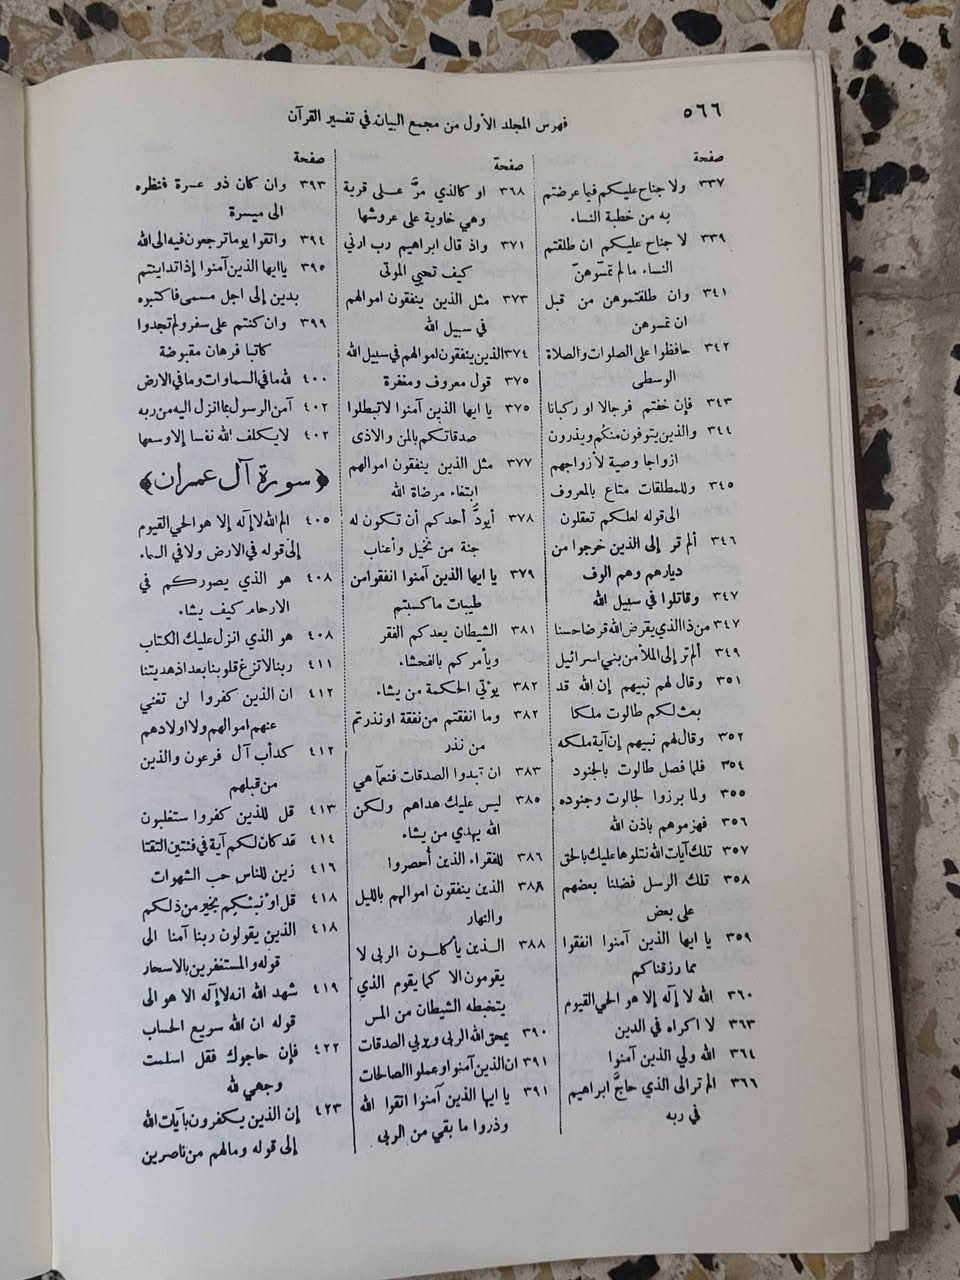 ٥٦٦
فهرس المجلد الأول من مجمع البيان في تفسير القرآن
صفحة
٣٣٧ ولا جناح عليكم فيما عرضتم
به من خطبة النساء
٣٣٩ لا جناح عليكم ان طلقتم
النساء مالم تمسّوهنّ
٣٤١ وان طلقتموهن من قبل
ان تمسوهن
٣٤٢ حافظوا على الصلوات والصلاة
الوسطى
٣٤٣ فإن خفتم فرجالا او ركبانا
٣٤٤ والذين يتوفون منكم ويذرون
ازواجا وصية لأزواجهم
٣٤٥ وللمطلقات متاع بالمعروف
الى قوله لعلكم تعقلون
٣٤٦ ألم تر إلى الذين خرجوا من
ديارهم وهم الوف
٣٤٧ وقاتلوا في سبيل الله
٣٤٧ من ذا الذي يقرض الله قرضا حسنا
٣٤٩ ألم تر إلى الملأ من بني اسرائيل
٣٥١ وقال لهم نبيهم إن الله قد
بعث لكم طالوت ملكا
٣٥٢ وقال لهم نبيهم إن آية ملكه
٣٥٤ فلما فصل طالوت بالجنود
٣٥٥ ولما برزوا لجالوت وجنوده
٣٥٦ فهزموهم باذن الله
٣٥٧ تلك آيات الله نتلوها عليك بالحق
٣٥٨ تلك الرسل فضلنا بعضهم
على بعض
٣٥٩ يا ايها الذين آمنوا انفقوا
مما رزقناكم
٣٦٠ الله لا إله إلا هو الحي القيوم
٣٦٣ لا اكراه في الدين
٣٦٤ الله ولي الذين آمنوا
٣٦٦ الم تر الى الذي حاجَّ ابراهيم
في ربه
صفحة
٣٦٨ او كالذي مرَّ على قرية
وهي خاوية على عروشها
٣٧١ واذ قال ابراهيم رب ارني
كيف تحيي الموتى
٣٧٣ مثل الذين ينفقون اموالهم
في سبيل الله
٣٧٤ الذين ينفقون اموالهم في سبيل الله
٣٧٥ قول معروف ومغفرة
٣٧٥ يا ايها الذين آمنوا لا تبطلوا
صدقاتكم بالمن والاذى
٣٧٧ مثل الذين ينفقون اموالهم
ابتغاء مرضاة الله
٣٧٨ أيودُّ أحدكم أن تكون له
جنة من نخيل وأعناب
٣٧٩ يا ايها الذين آمنوا انفقوا من
طيبات ما كسبتم
٣٨١ الشيطان يعدكم الفقر
ويأمركم بالفحشاء
٣٨٢ يؤتي الحكمة من يشاء
٣٨٢ وما انفقتم من نفقة او نذرتم
من نذر
٣٨٣ ان تبدوا الصدقات فنعمّا هي
٣٨٥ ليس عليك هداهم ولكن
الله يهدي من يشاء
٣٨٦ للفقراء الذين أُحصروا
٣٨٨ الذين ينفقون اموالهم بالليل
والنهار
٣٨٨ الذين يأكلون الربى لا
يقومون الا كما يقوم الذي
يتخبطه الشيطان من المس
٣٩٠ يمحق الله الربى ويربي الصدقات
٣٩١ ان الذين آمنوا وعملوا الصالحات
٣٩١ يا ايها الذين آمنوا اتقوا الله
وذروا ما بقي من الربى
صفحة
٣٩٣ وان كان ذو عسرة فنظره
الى ميسرة
٣٩٤ واتقوا يوما ترجعون فيه الى الله
٣٩٥ يا ايها الذين آمنوا إذا تداينتم
بدين إلى اجل مسمى فاكتبوه
٣٩٩ وان كنتم على سفر ولم تجدوا
كاتبا فرهان مقبوضة
٤٠٠ لله ما في السماوات وما في الارض
٤٠٢ آمن الرسول بما انزل اليه من ربه
٤٠٢ لا يكلف الله نفسا إلا وسعها
﴿سورة آل عمران﴾
٤٠٥ الم الله لا إله إلا هو الحي القيوم
إلى قوله في الارض ولا في السماء
٤٠٨ هو الذي يصوركم في
الارحام كيف يشاء
٤٠٨ هو الذي انزل عليك الكتاب
٤١١ ربنا لا تزغ قلوبنا بعد اذ هديتنا
٤١٢ ان الذين كفروا لن تغني
عنهم اموالهم ولا اولادهم
٤١٢ كدأب آل فرعون والذين
من قبلهم
٤١٣ قل للذين كفروا ستغلبون
٤١٤ قد كان لكم آية في فئتين التقتا
٤١٦ زين للناس حب الشهوات
٤١٨ قل اؤنبئكم بخير من ذلكم
٤١٨ الذين يقولون ربنا آمنا الى
قوله والمستغفرين بالاسحار
٤١٩ شهد الله انه لا إله الا هو الى
قوله ان الله سريع الحساب
٤٢٢ فإن حاجوك فقل اسلمت
وجهي لله
٤٢٣ إن الذين يكفرون بآيات الله
إلى قوله ومالهم من ناصرين